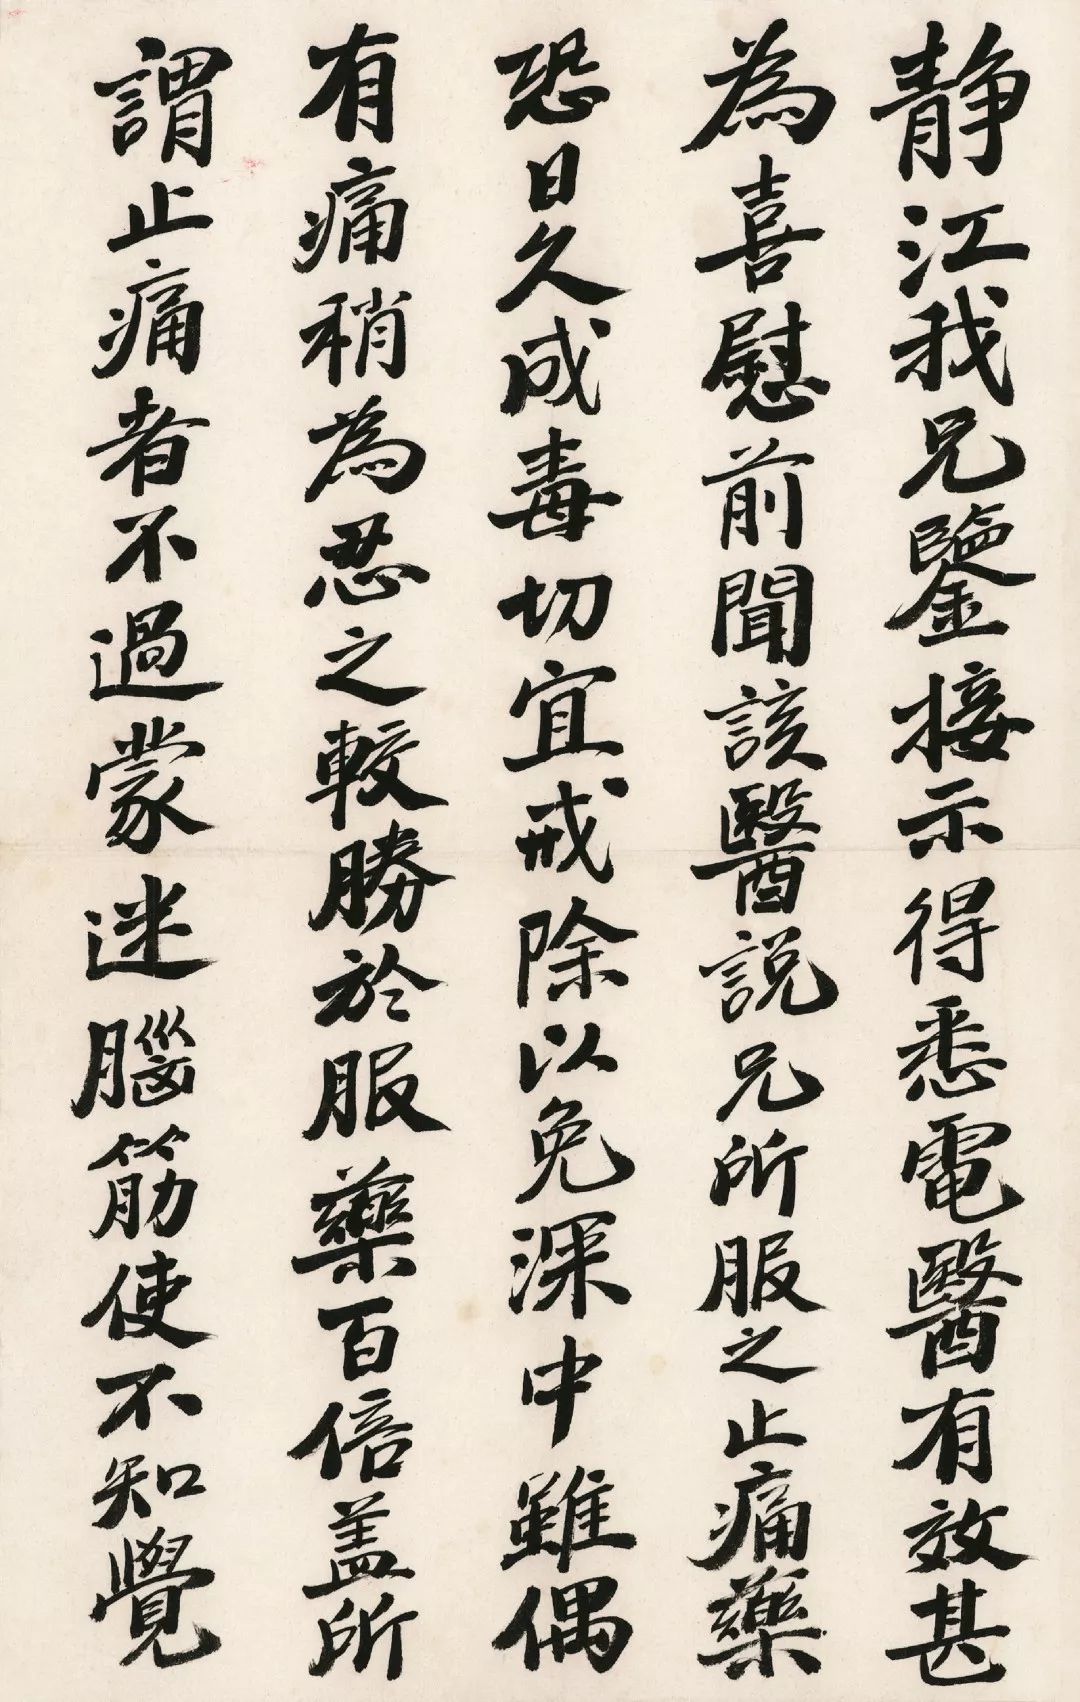 静江我兄鑒接示得悉電醫有效甚
為喜慰前聞該醫説兄所服之止痛藥
恐日久成毒切宜戒除以免深中雖偶
有痛稍為忍之較勝於服藥百倍盖所
謂止痛者不過蒙迷腦筋使不知覺